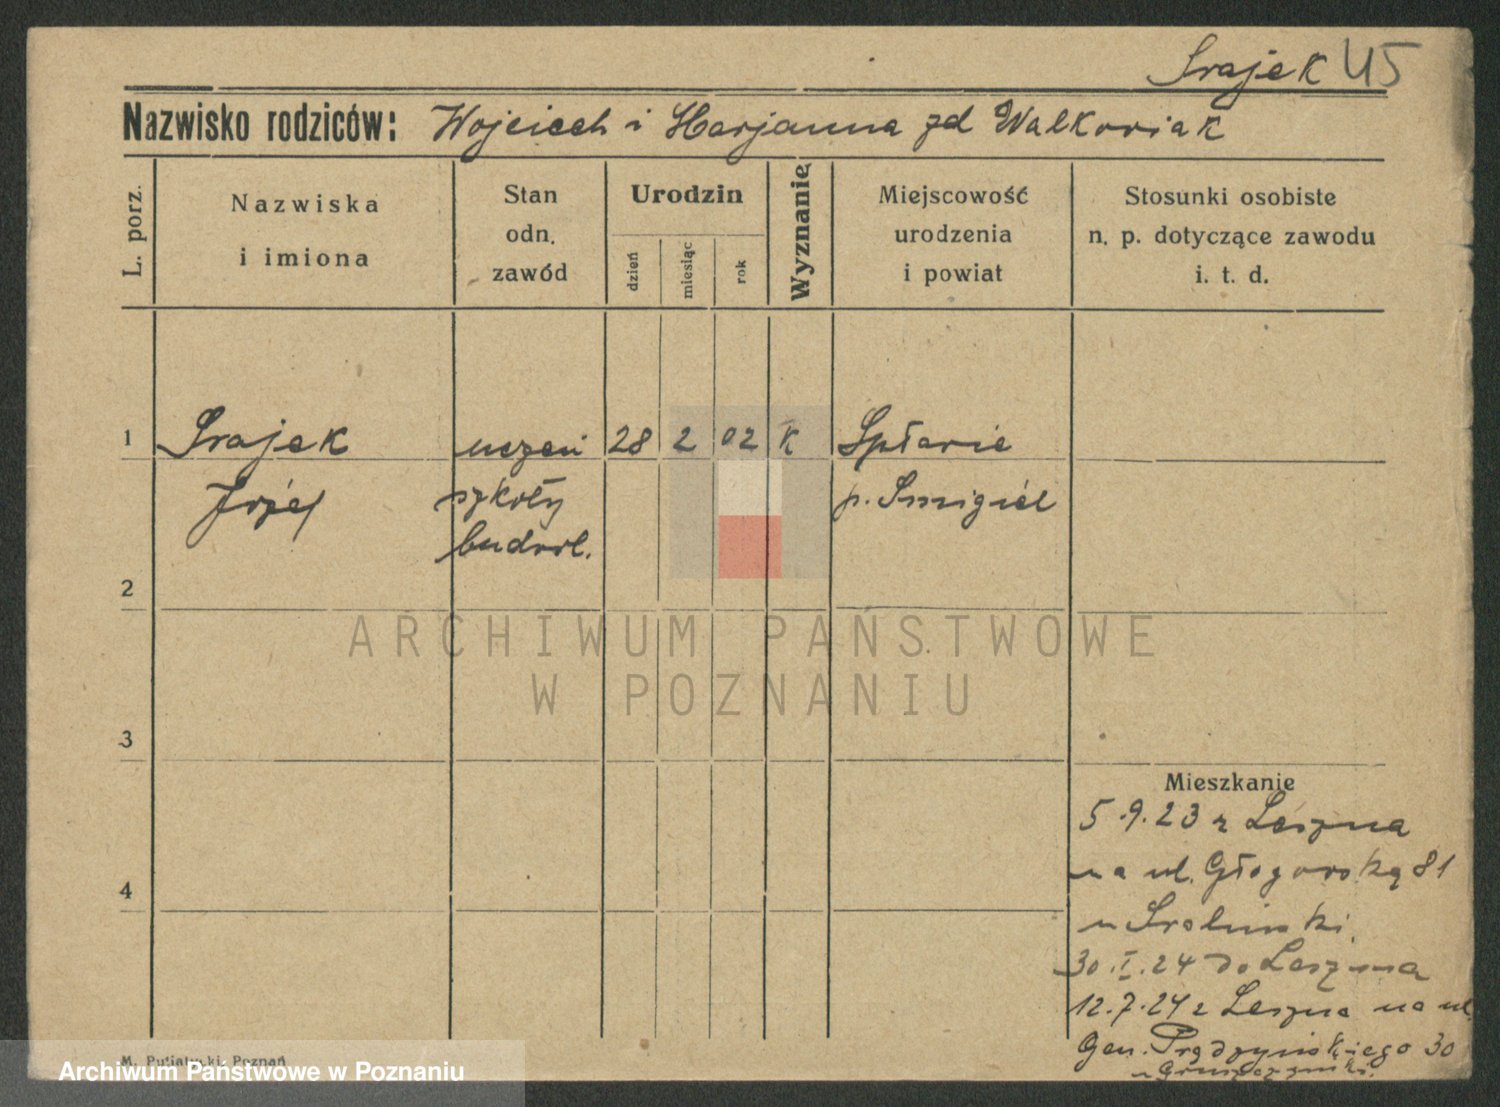 Srajek 45
Nazwisko rodziców: Wojciech i Marjanna zd Walkowiak
L. porz.
Nazwiska
i imiona
Stan
odn.
zawód
Urodzin
dzień
miesiąc
rok
Wyznanie
Miejscowość
urodzenia
i powiat
Stosunki osobiste
n. p. dotyczące zawodu
i. t. d.
1 Srajek uczeń 28 2 02 K Spławie
Józef szkoły p. Śmigiel
budowl.
2
ARCHIWUM PAŃSTWOWE
W POZNANIU
3
Mieszkanie
5.9.23 z Leszna
na ul. Głogowską 81
u
30.I.24 do Leszna
4
12.7.24 z Leszna na ul.
Gen. Prądzyńskiego 30
M. Putiatycki, Poznań
Archiwum Państwowe w Poznaniu